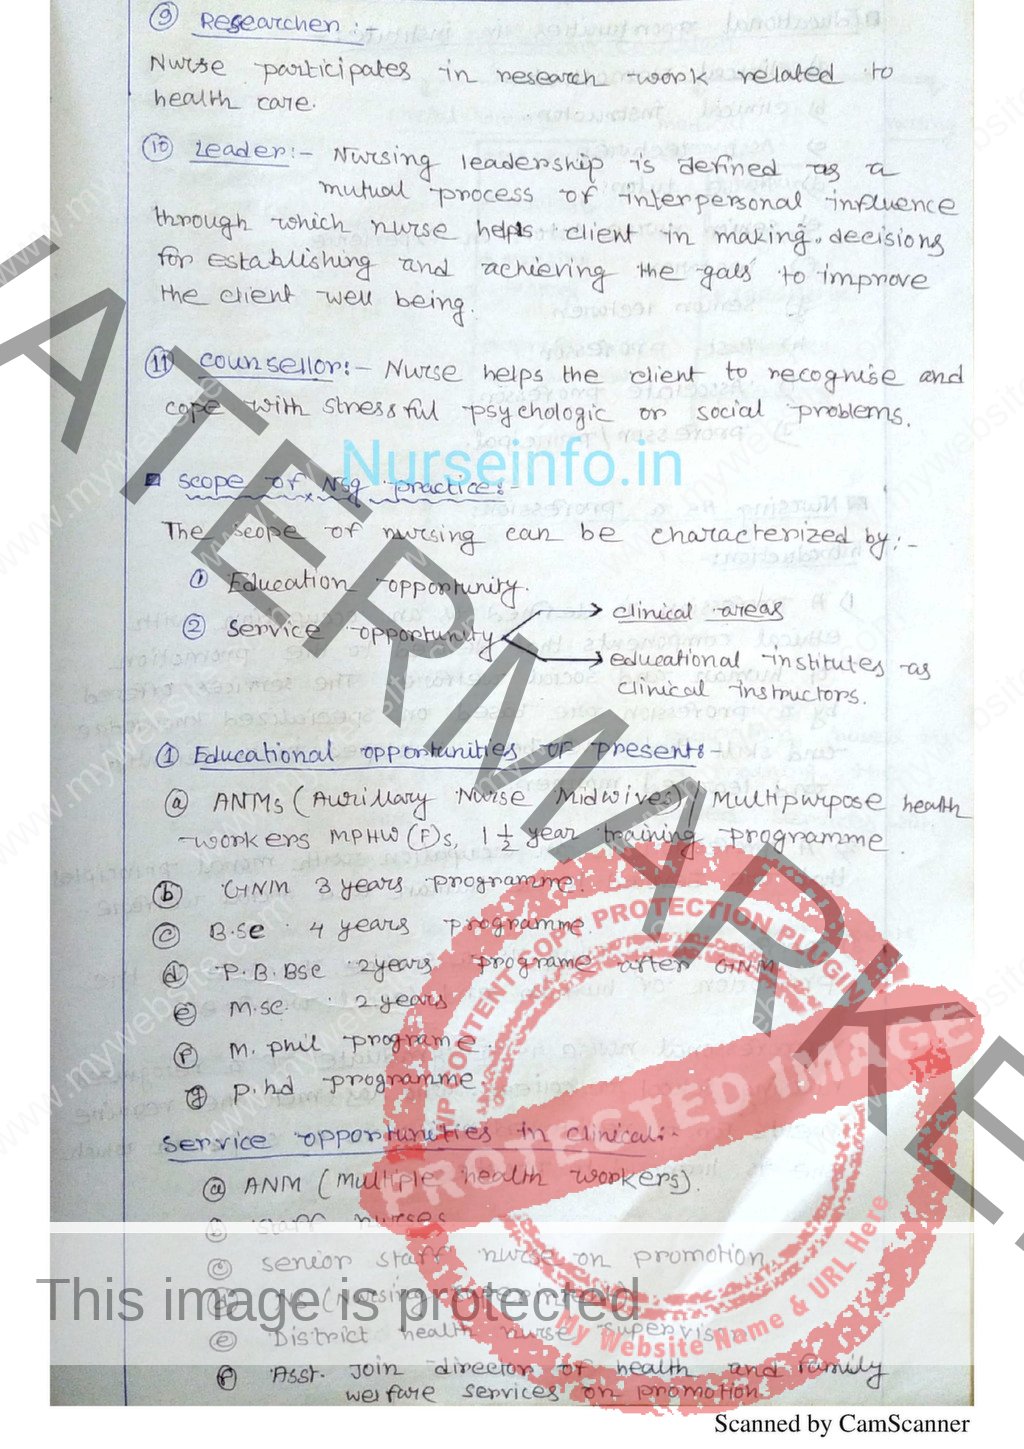 ⑨ Researcher :-
Nurse participates in research work related to
health care.
⑩ Leader:- Nursing leadership is defined as a
mutual process of interpersonal influence
through which nurse helps client in making decisions
for establishing and achieving the gals to improve
the client well being.
⑪ counsellor:- Nurse helps the client to recognise and
cope with stressful psychologic or social problems.
Nurseinfo.in
■ scope of Nsg practice:-
The scope of nursing can be characterized by:-
① Education opportunity.
② service opportunity → clinical areas
→ educational institutes as
clinical instructors.
① Educational opportunities of present:-
ⓐ ANMs (Auxillary Nurse Midwives) / Multipurpose health
workers MPHW (F)s, 1 1/2 year training programme.
ⓑ GNM 3 years programme.
ⓒ B.Sc 4 years programme
ⓓ P.B.BSc 2years programe after GNM
ⓔ M.sc. 2 years
ⓕ M. phil programe.
ⓖ P.hd programme
service opportunities in clinical:-
ⓐ ANM (multiple health workers).
ⓑ staff nurses
ⓒ senior staff nurse on promotion
ⓓ NS (Nursing
ⓔ District health nurse supervisor
ⓕ Asst. Join director of health and family
welfare services on promotion
WATERMARKED
WP CONTENT COPY PROTECTION PLUGIN
PROTECTED IMAGE
My Website Name & URL Here
This image is protected
www.mywebsite.com
Scanned by CamScanner